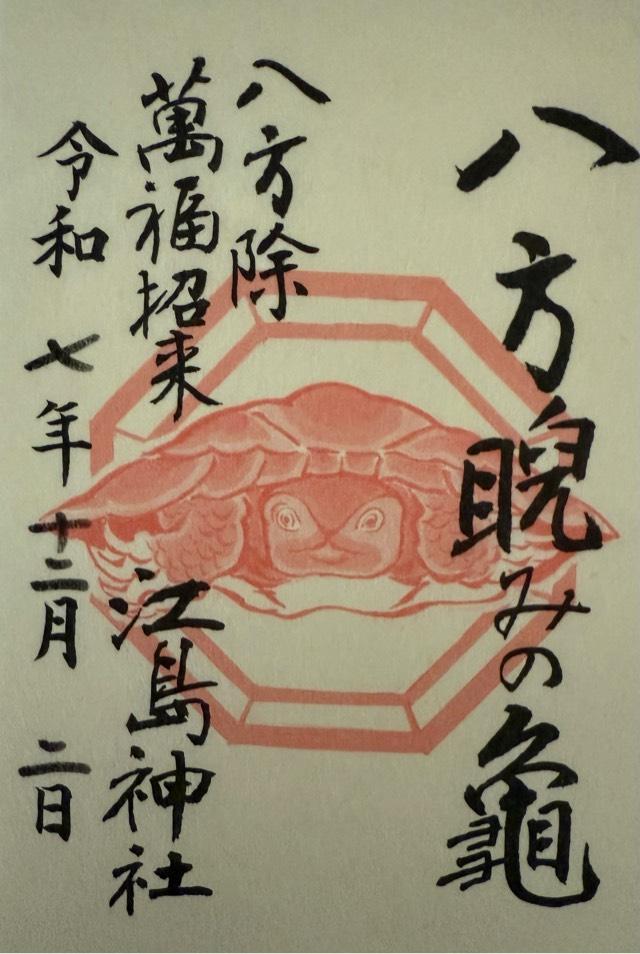 八方睨みの龜
八方除
萬福招来
江島神社
令和七年十二月二日